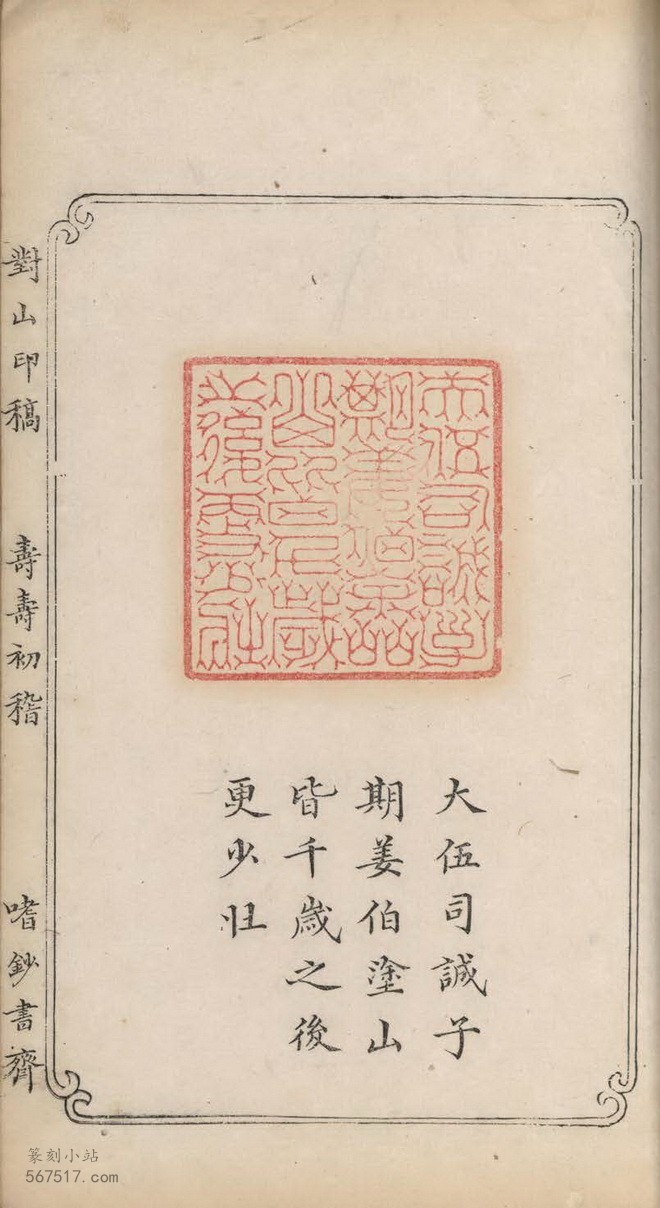 大伍司誠子
期姜伯塗山
皆千歲之後
更少壯
對山印稿　壽壽初稽　嗜鈔書齋
篆刻小站
567517.com